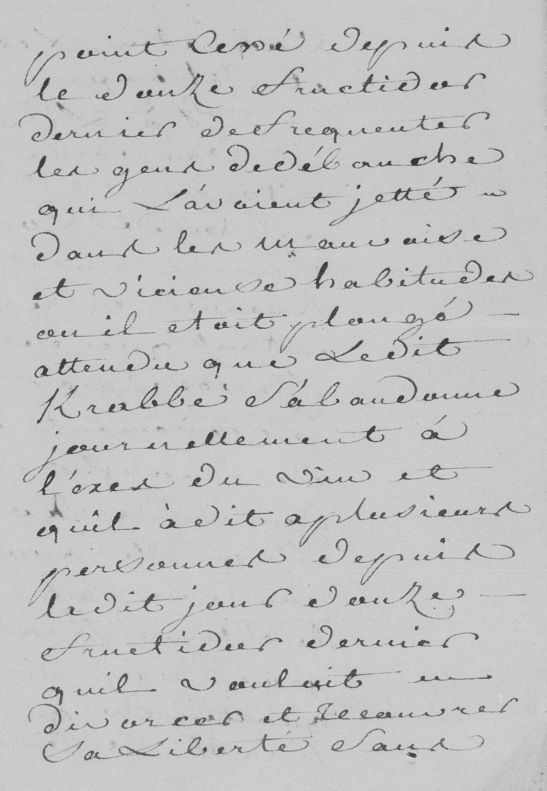 point Cessé depuis
le douze fructidor
dernier de frequenter
les gens de débauche
qui L'avoient jetté
dans les mauvaise
et vicieuse habitudes
ou il etoit plongé —
attendu que Ledit
Krabbé S'abandonne
journellement á
l'exes du vin et
qu'il à dit a plusieurs
personnes depuis
ledit jour douze —
fructidor dernier
quil vouloit
divorcer et recouvrer
Sa Liberté Sans